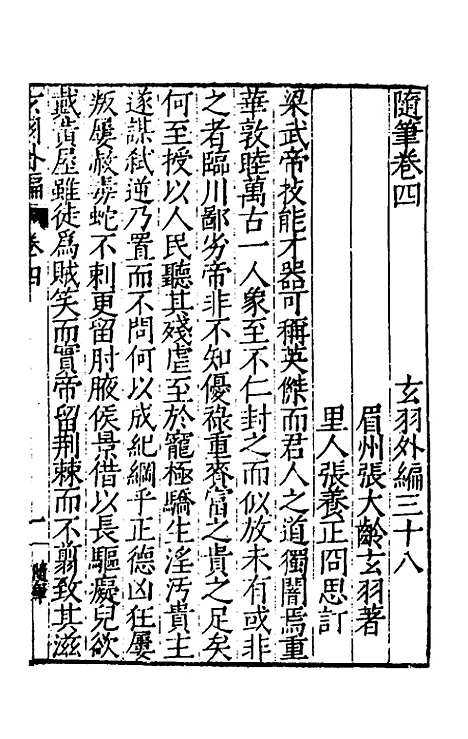 隨筆卷四　玄羽外編三十八
眉州張大齡玄羽著
里人張養正冏思訂
梁武帝技能才器可稱英傑而君人之道獨闇焉重
華敦睦萬古一人象至不仁封之而似放未有或非
之者臨川鄙劣帝非不知優祿重賚富之貴之足矣
何至授以人民聽其殘虐至於寵極驕生淫汚貴主
遂謀弑逆乃置而不問何以成紀綱乎正德凶狂屢
叛屢赦毒蛇不剌更留肘腋侯景借以長驅癡兒欲
戴黃屋雖徒爲賊笑而實帝留荆棘而不翦致其滋
玄羽外編　卷四　一　隨筆